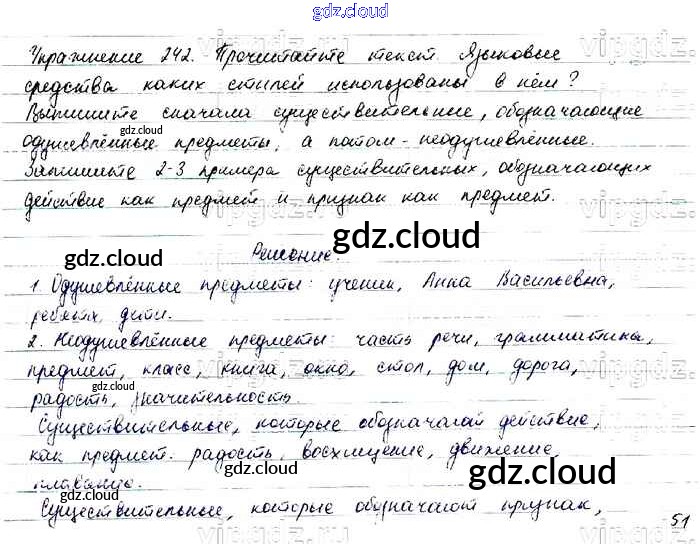 gdz.cloud
Упражнение 242. Прочитайте текст. Языковые
средства каких стилей использованы в нём?
Выпишите сначала существительные, обозначающие
gdz.cloud
одушевлённые предметы, а потом - неодушевлённые.
Запишите 2-3 примера существительных, обозначающих
действие как предмет и признак как предмет.
vipgdz.ru
gdz.cloud
gdz.cloud
Решение.
1. Одушевлённые предметы: ученик, Анна Васильевна,
ребята, дети.
gdz.cloud
2. Неодушевлённые предметы: часть речи, грамматика,
предмет, класс, книга, окно, стол, дом, дорога,
gdz.cloud
радость, значительность.
Существительные, которые обозначают действие,
как предмет: радость, восхищение, движение,
gdz.cloud
gdz.cloud
плавание.
Существительные, которые обозначают признак,
gdz.cloud
51